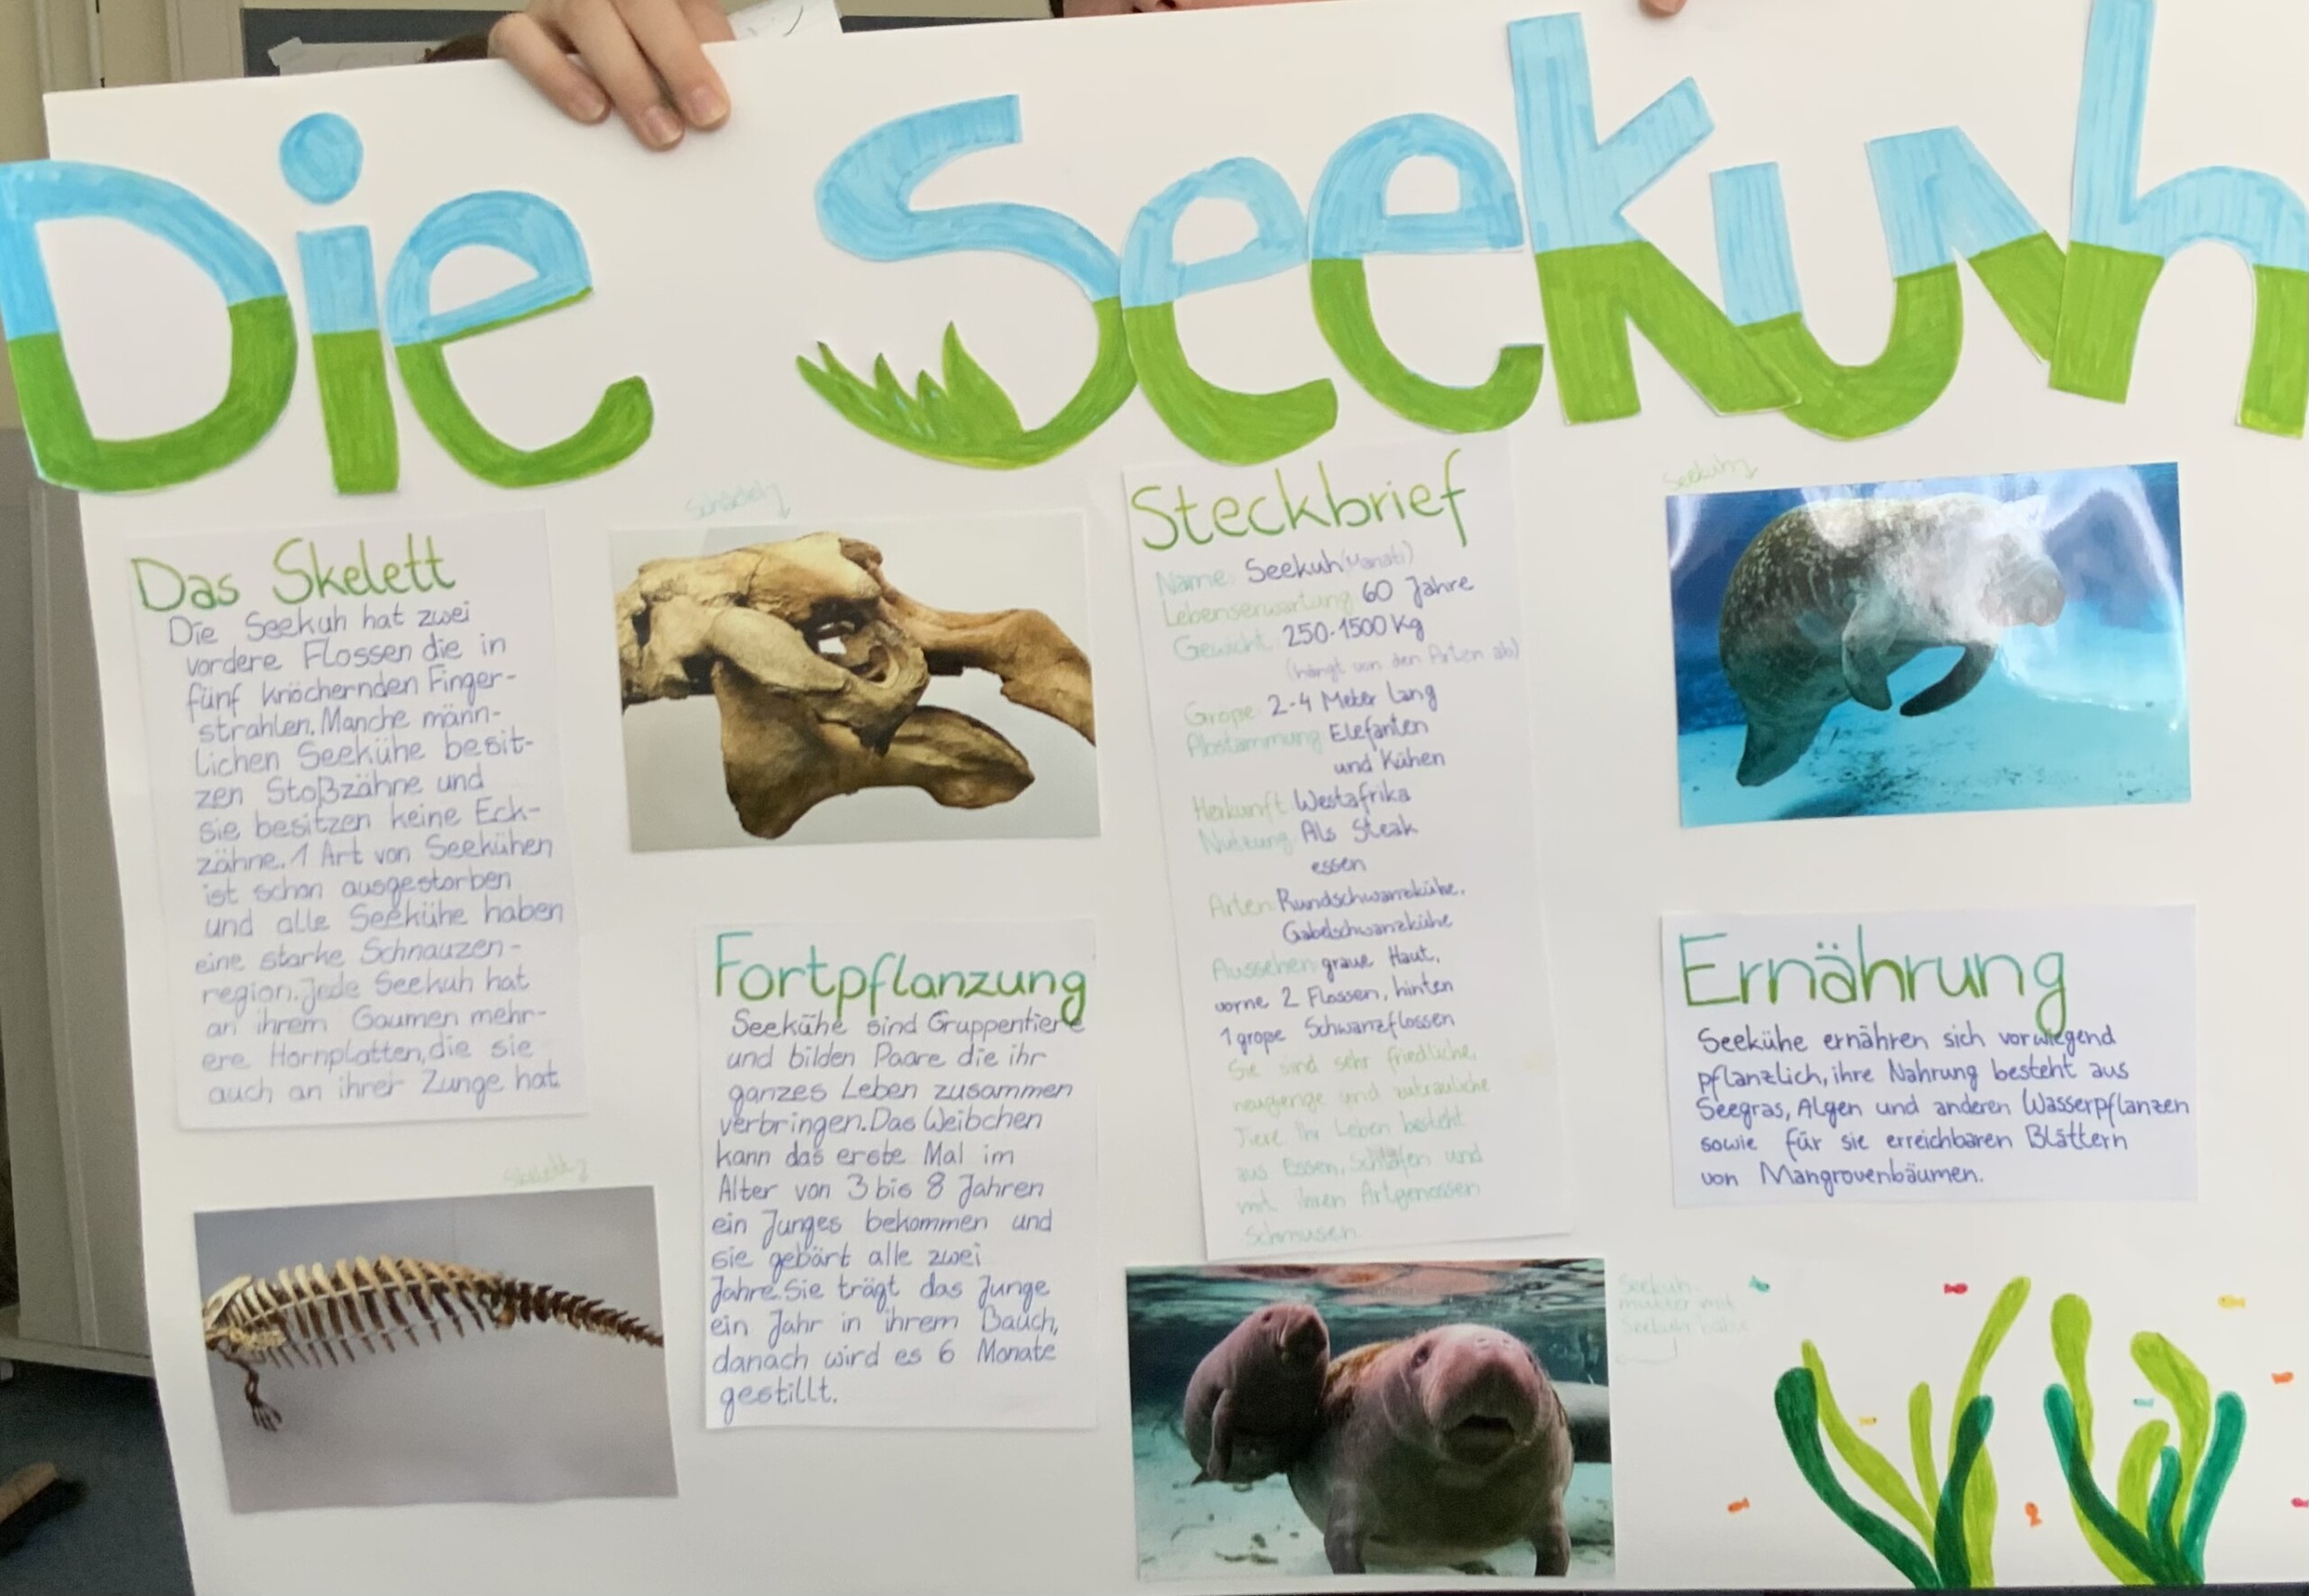 Die Seekuh
Das Skelett
Die Seekuh hat zwei
vordere Flossen die in
fünf knöchernden Finger-
strahlen. Manche männ-
lichen Seekühe besit-
zen Stoßzähne und
sie besitzen keine Eck-
zähne. 1 Art von Seekühen
ist schon ausgestorben
und alle Seekühe haben
eine starke Schnauzen-
region. Jede Seekuh hat
an ihrem Gaumen mehr-
ere Hornplatten, die sie
auch an ihrer Zunge hat
Skelett
Schädel
Fortpflanzung
Seekühe sind Gruppentiere
und bilden Paare die ihr
ganzes Leben zusammen
verbringen. Das Weibchen
kann das erste Mal im
Alter von 3 bis 8 Jahren
ein Junges bekommen und
sie gebärt alle zwei
Jahre. Sie trägt das Junge
ein Jahr in ihrem Bauch,
danach wird es 6 Monate
gestillt.
Steckbrief
Name: Seekuh (Manati)
Lebenserwartung: 60 Jahre
Gewicht: 250-1500 Kg
(hängt von den Arten ab)
Grope: 2-4 Meter Lang
Abstammung: Elefanten
und Kühen
Herkunft: Westafrika
Nutzung: Als Steak
essen
Arten: Rundschwanzkühe,
Gabelschwanzkühe
Aussehen: graue Haut,
vorne 2 Flossen, hinten
1 grope Schwanzflossen
Sie sind sehr friedliche,
neugierige und zutrauliche
Tiere Ihr Leben besteht
aus Essen, Schlafen und
mit ihren Artgenossen
Schmusen.
Seekuh
Ernährung
Seekühe ernähren sich vorwiegend
pflanzlich, ihre Nahrung besteht aus
Seegras, Algen und anderen Wasserpflanzen
sowie für sie erreichbaren Blättern
von Mangrovenbäumen.
Seekuh-
mutter mit
Seekuh